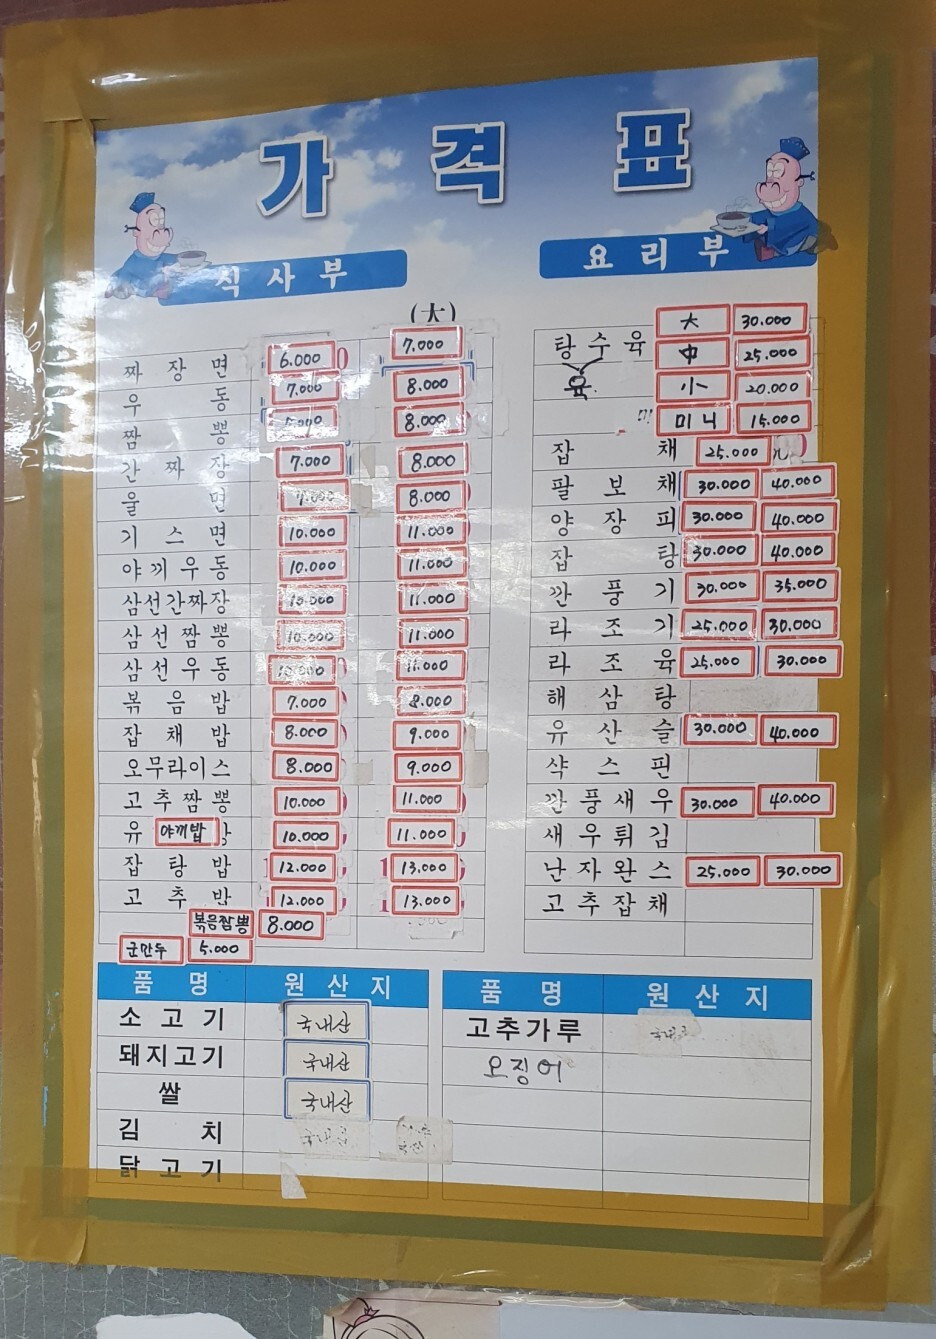 가격표
식사부
(大)
짜장면 6.000 7.000
우동 7.000 8.000
짬뽕 8.000
간짜장 7.000 8.000
울면 7.000 8.000
기스면 10.000 11.000
야끼우동 10.000 11.000
삼선간짜장 10.000 11.000
삼선짬뽕 10.000 11.000
삼선우동 10.000 11.000
볶음밥 7.000 8.000
잡채밥 8.000 9.000
오무라이스 8.000 9.000
고추짬뽕 10.000 11.000
유 야끼밥 10.000 11.000
잡탕밥 12.000 13.000
고추반 12.000 13.000
볶음짬뽕 8.000
군만두 5.000
요리부
탕수육 大 30.000
육 中 25.000
小 20.000
미니 15.000
잡채 25.000
팔보채 30.000 40.000
양장피 30.000 40.000
잡탕 30.000 40.000
깐풍기 30.000 35.000
라조기 25.000 30.000
라조육 25.000 30.000
해삼탕
유산슬 30.000 40.000
샥스핀
깐풍새우 30.000 40.000
새우튀김
난자완스 25.000 30.000
고추잡채
품명 원산지
소고기 국내산
돼지고기 국내산
쌀 국내산
김치
닭고기
품명 원산지
고추가루
오징어